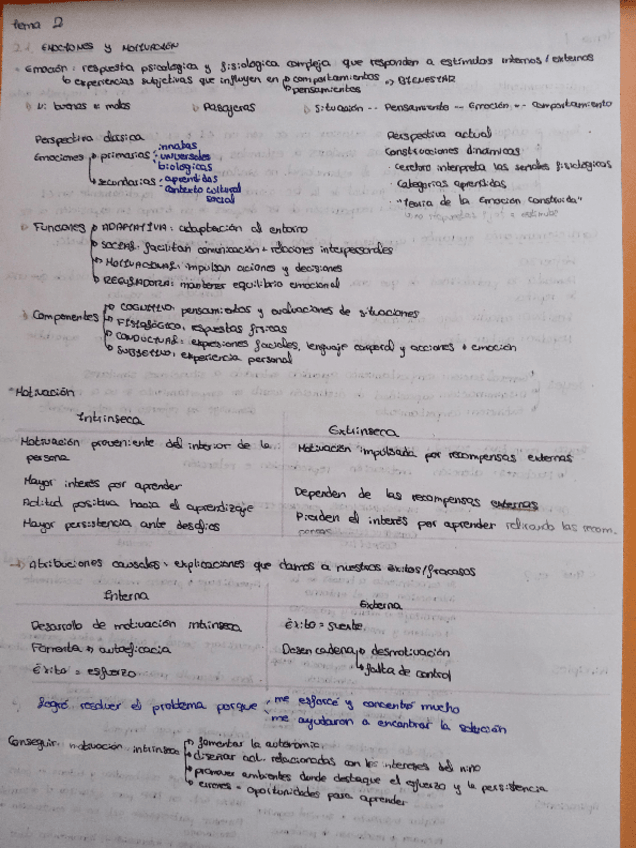 Tema 2
2.1. EMOCIONES Y MOTIVACIÓN
Emoción: respuesta psicologica y fisiologica compleja que responden a estímulos internos/externos
↳ experiencias subjetivas que influyen en → comportamientos → BIENESTAR
→ pensamientos
Ni buenas ni malas
Pasajeras
Situación -- Pensamiento -- Emoción -- comportamiento
Perspectiva clasica
Emociones → primarias: innatas
universales
biologicas
→ secundarias: aprendidas
contexto cultural
social
Perspectiva actual
Construcciones dinámicas
· cerebro interpreta las señales fisiológicas
· Categorías aprendidas
· "Teoría de la Emoción Construida"
Funciones → ADAPTATIVA: adaptación al entorno
→ SOCIAL: facilitan comunicación + relaciones interpersonales
→ MOTIVACIONAL: impulsan acciones y decisiones
→ REGULADORA: mantener equilibrio emocional
Componentes → COGNITIVO: pensamientos y evaluaciones de situaciones
→ FISIOLÓGICO: respuestas físicas
→ CONDUCTUAL: expresiones faciales, lenguaje corporal y acciones + emoción
→ SUBJETIVO: experiencia personal
Motivación
Intrínseca
Motivación proveniente del interior de la
persona
Mayor interés por aprender
Actitud positiva hacia el aprendizaje
Mayor persistencia ante desafíos
Extrínseca
Motivación impulsada por recompensas externas
Dependen de las recompensas externas
Pierden el interés por aprender retirando las recom-
pensas
→ Atribuciones causales: explicaciones que damos a nuestros éxitos/fracasos
Interna
Desarrollo de motivación intrínseca
Fomenta → autoeficacia
Éxito = esfuerzo
Externa
Éxito = suerte
Desencadena → desmotivación
↳ falta de control
Logré resolver el problema porque me esforcé y concentré mucho
me ayudaron a encontrar la solución
Conseguir motivación intrínseca → fomentar la autonomía
→ diseñar act. relacionadas con los intereses del niño
→ promover ambientes donde destaque el esfuerzo y la persistencia
→ errores = oportunidades para aprender